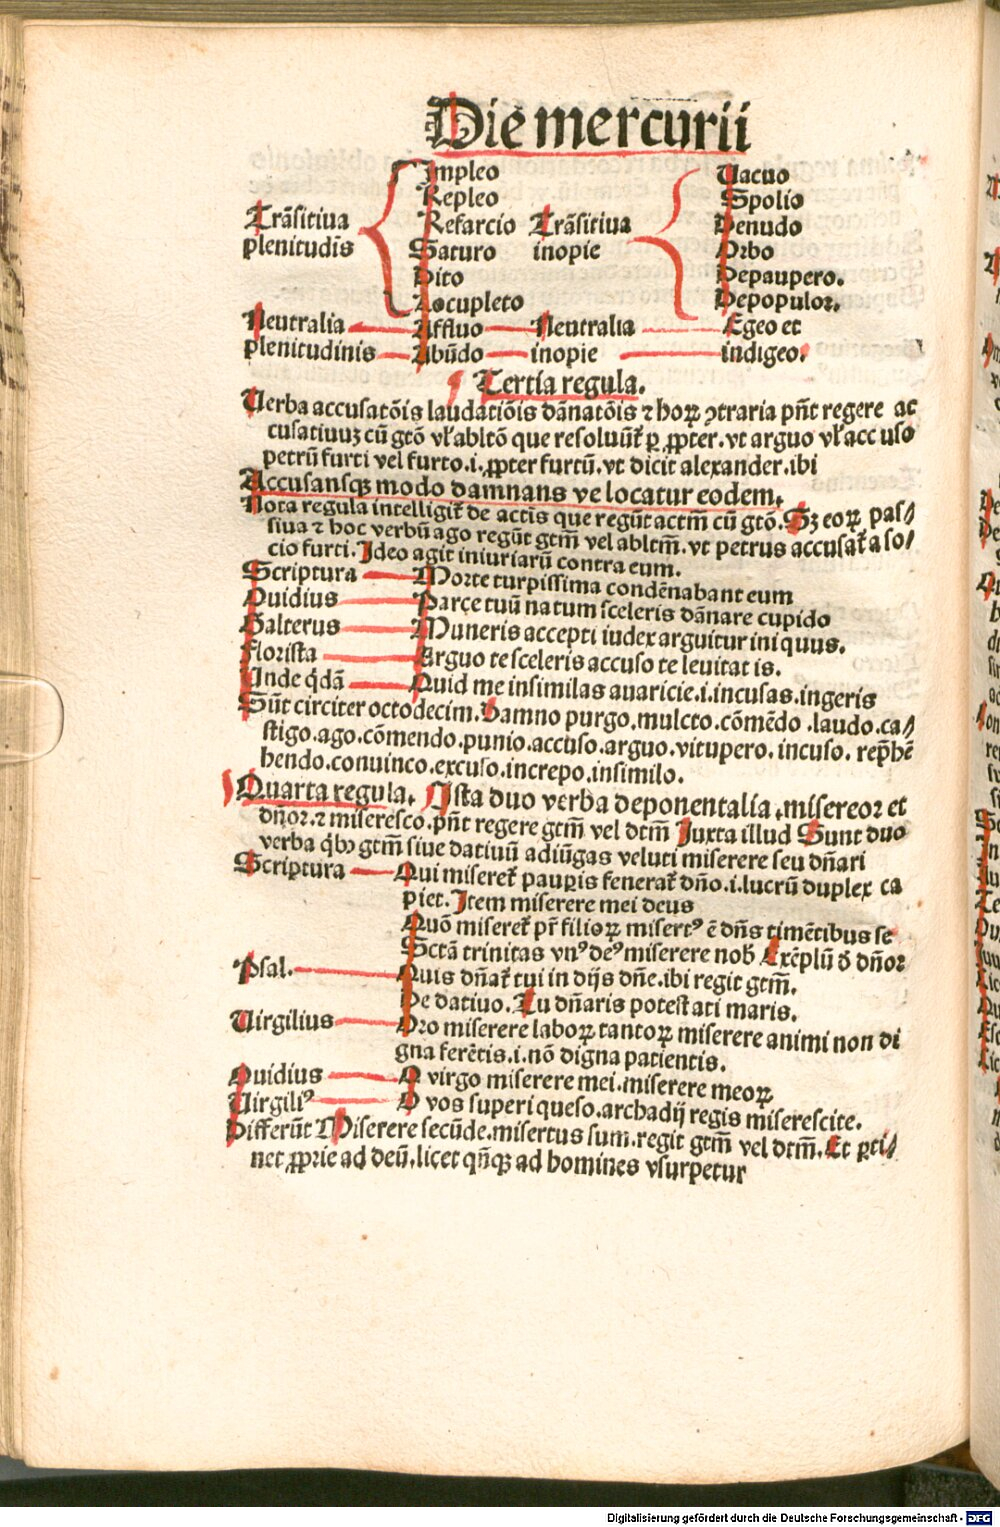 Die mercurii
Impleo Vacuo
Repleo Spolio
Trãsitiua Refarcio Trãsitiua Denudo
plenitudĩs Saturo inopie Orbo
Dito Depaupero.
Locupleto Depopulor.
Neutralia Affluo Neutralia Egeo et
plenitudinis Abũdo inopie indigeo.
Tertia regula.
Uerba accusatõis laudatiõis dãnatõis ⁊ hoꝝ ↄ̈traria pñt regere ac
cusatiuuʒ cũ gtõ vł abltõ que resoluũt̃ ꝑ ꝓpter. vt arguo vł accuso
petrũ furti vel furto.i.ꝓpter furtũ. vt dicit alexander.ibi
Accusansqꝫ modo damnans ve locatur eodem.
Nota regula intelligit̃ de actis que regũt actm̃ cũ gtõ. Sʒ eoꝝ pas⸗
siua ⁊ hoc verbũ ago regũt gtm̃ vel abltm̃. vt petrus accusat̃ a so⸗
cio furti. Ideo agit iniuriarũ contra eum.
Scriptura Morte turpissima condẽnabant eum
Ouidius Parce tuũ natum sceleris dãnare cupido
Galterus Muneris accepti iudex arguitur iniquus.
Florista Arguo te sceleris accuso te leuitatis.
Unde q̃dã Quid me insimilas auaricie.i.incusas.ingeris
Sũt circiter octodecim. Damno purgo.mulcto.cõmẽdo.laudo.ca⸗
stigo.ago.cõmendo.punio.accuso.arguo.vitupero. incuso. rep̃hẽ
hendo.conuinco.excuso.increpo.insimilo.
Quarta regula. Ista duo verba deponentalia.misereor et
dñor.⁊ miseresco.pñt regere gtm̃ vel dtm̃ Juxta illud Sunt duo
verba q̃bꝰ gtm̃ siue datiuũ adiũgas veluti miserere seu dñari
Scriptura Qui miseret̃ pauꝑis fenerat̃ dño.i.lucrũ duplex ca
piet. Item miserere mei deus
Quõ miseret̃ pr̃ filioꝝ misertꝰ ẽ dñs timẽtibus se
Sctã trinitas vnꝰ deꝰ miserere nob̃ Exẽplũ ð dñor
Psal. Quis dñat̃ tui in dijs dñe.ibi regit gtm̃.
De datiuo. Tu dñaris potestati maris.
Uirgilius Oro miserere laboꝝ tantoꝝ miserere animi non di
gna ferẽtis.i.nõ digna patientis.
Ouidius O virgo miserere mei.miserere meoꝝ
Uirgiliꝰ O vos superi queso.archadij regis miserescite.
Differũt Miserere secũde.misertus sum.regit gtm̃ vel dtm̃. Et ꝑti⸗
net ꝓprie ad deũ.licet qñqꝫ ad homines vsurpetur
Digitalisierung gefördert durch die Deutsche Forschungsgemeinschaft - DFG